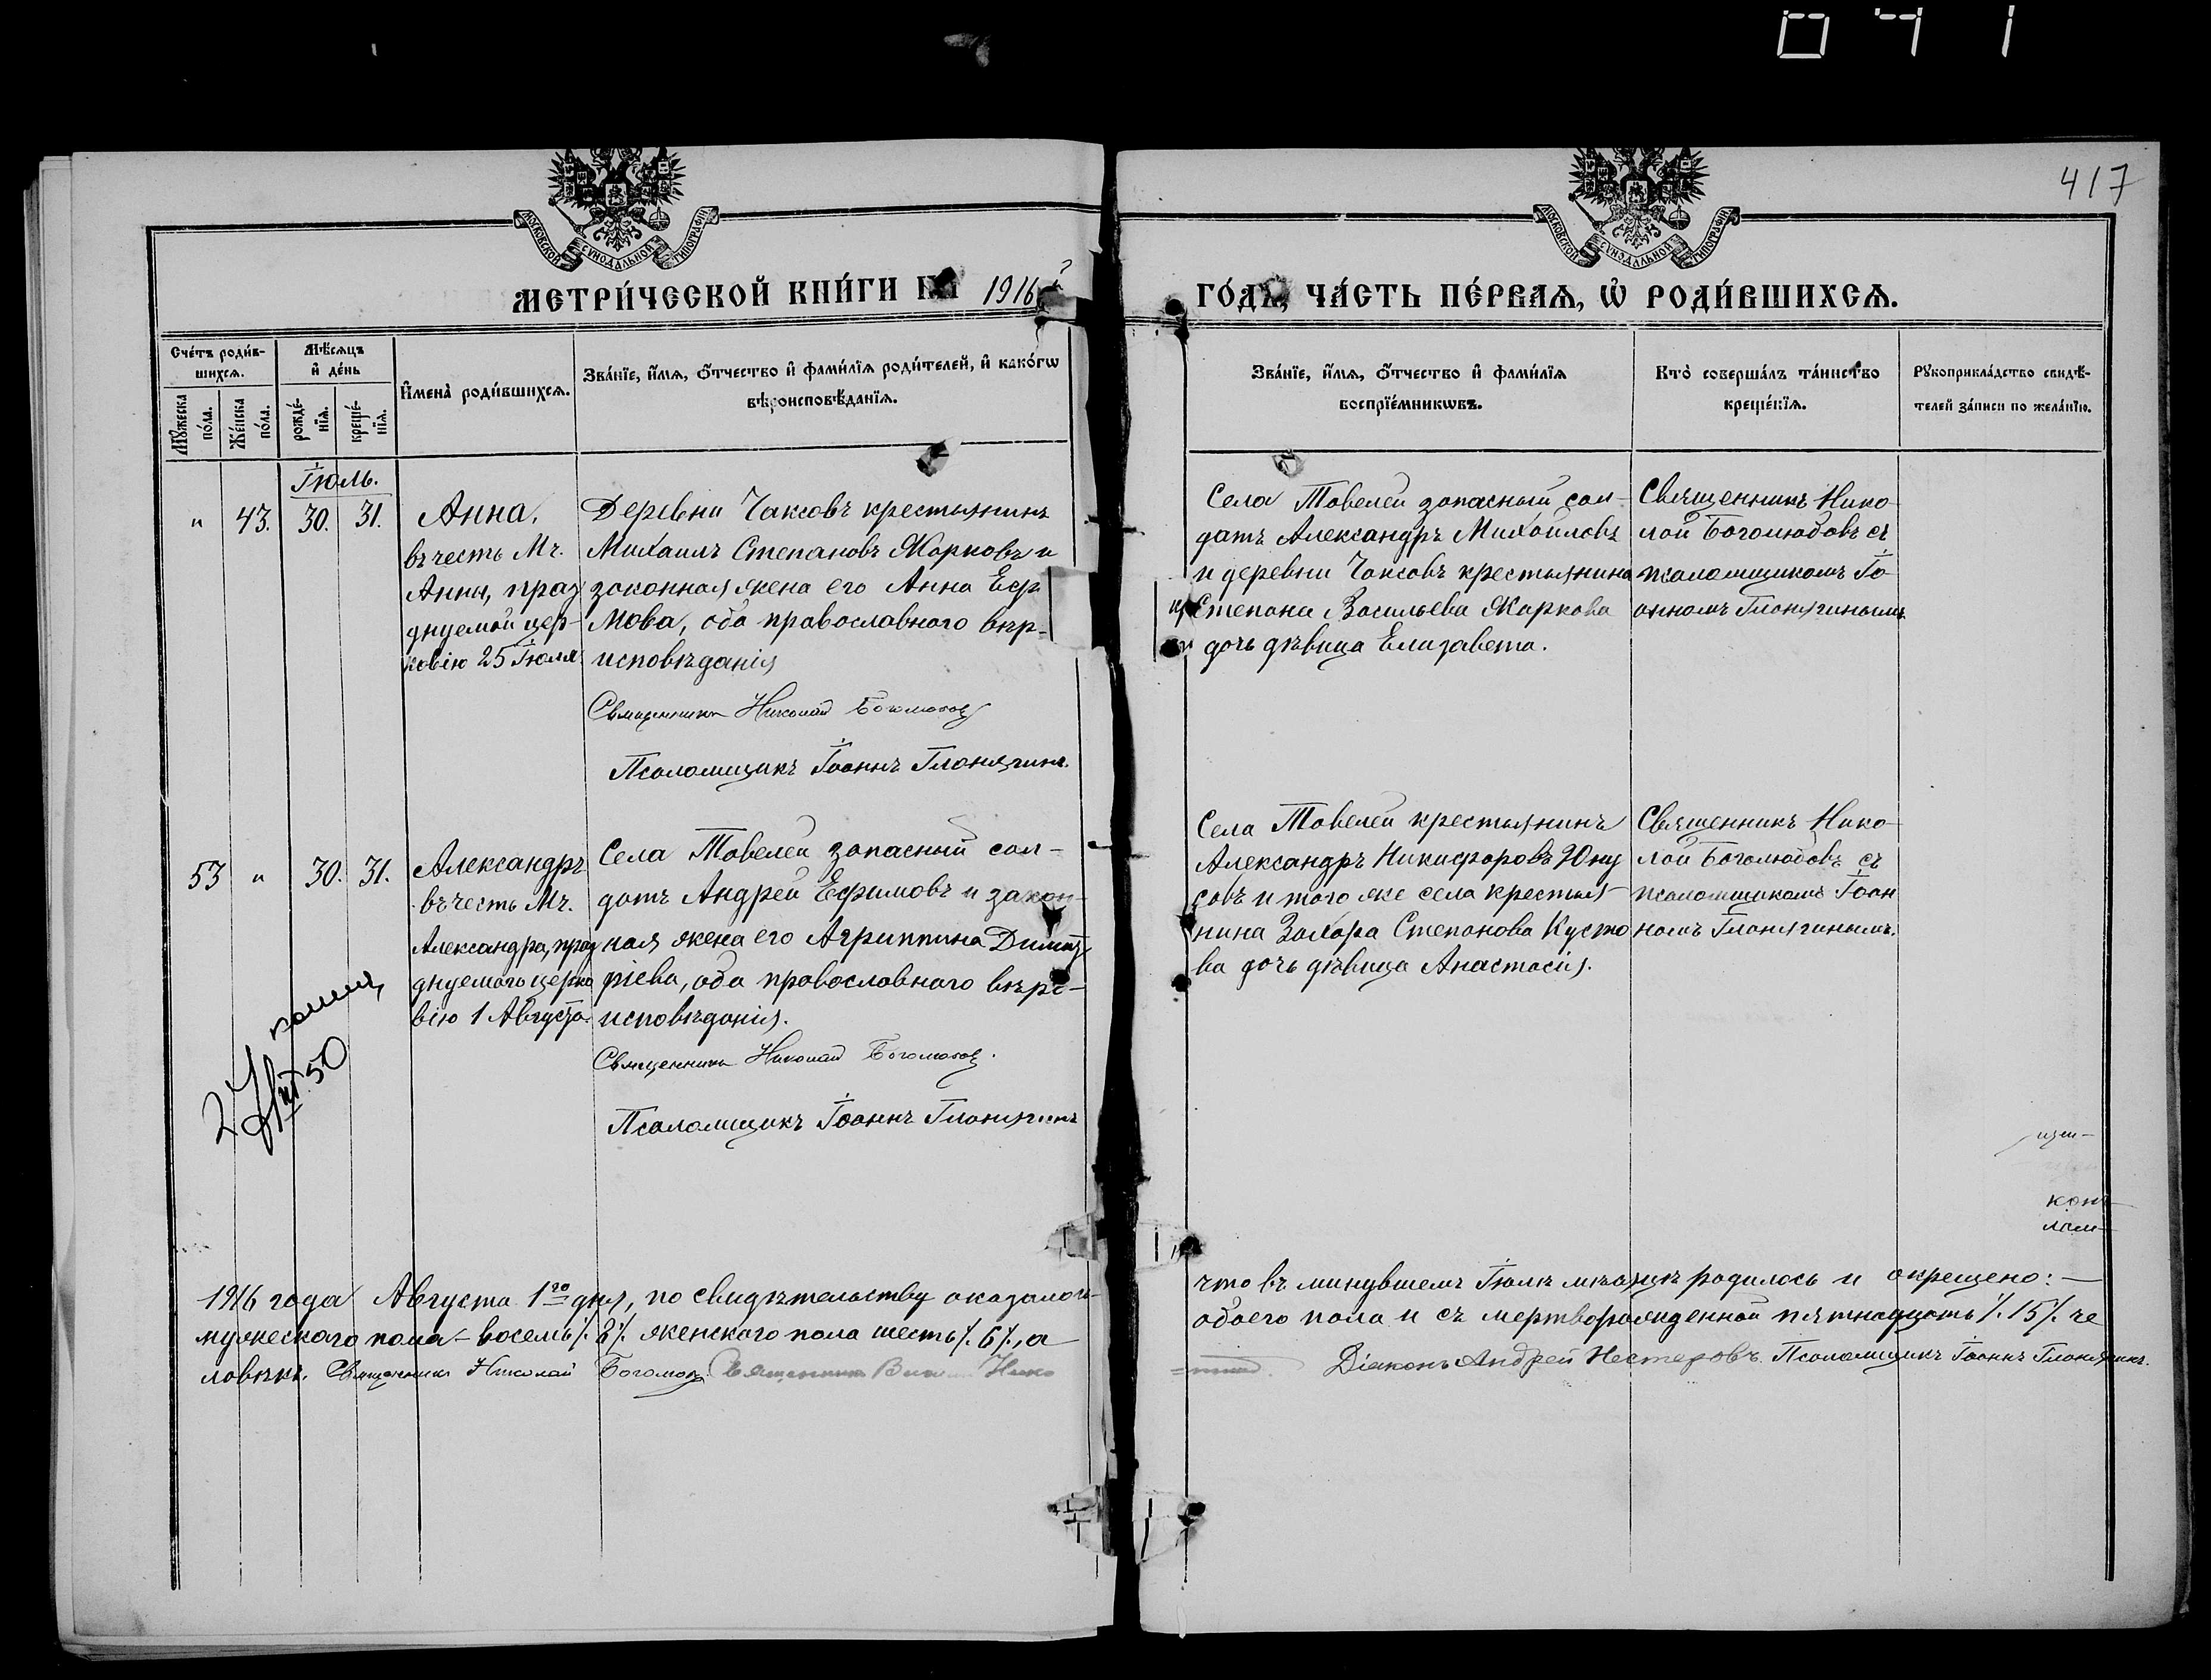 041
417
МОСКОВСКОЙ СѴНОДАЛЬНОЙ ТИПОГРАФІИ
МОСКОВСКОЙ СѴНОДАЛЬНОЙ ТИПОГРАФІИ
МЕТРИ́ЧЕСКОЙ КНИ́ГИ НА 1916
ГО́ДЪ, ЧА́СТЬ ПЕ́РВАѦ, Ѡ҆ РОДИ́ВШИХСѦ.
Сче́тъ роди́в-
шихсѧ.
Мѣ́сѧцъ
и҆ де́нь
Мꙋ́жеска
по́ла.
Же́нска
по́ла.
рожде́-
нїѧ.
креще́-
нїѧ.
И҆мена̀ роди́вшихсѧ.
Зва́нїе, и҆́мѧ, ѻ҆́тчество и҆ фами́лїѧ роди́телей, и҆ како́гѡ
вѣроисповѣ́данїѧ.
Зва́нїе, и҆́мѧ, ѻ҆́тчество и҆ фами́лїѧ
воспрїе́мникѡвъ.
Кто̀ соверша́лъ та́инство
креще́нїѧ.
Рꙋкоприкла́дство свидѣ́-
телей за́писи по жела́нїю.
Іюль.
" 43. 30. 31.
Анна,
въ честь Мч.
Анны, праз
днуемой цер-
ковію 25 Іюля
Деревни Чаксовъ крестьянинъ
Михаилъ Степановъ Жарковъ и
законная жена его Анна Ефи
мова, оба православного вѣр-
исповѣданія
Священникъ Николай Боголюбовъ
Псаломщикъ Іоаннъ Гланягинъ.
Села Товелей запасный сол-
датъ Александръ Михайловъ
и деревни Чаксовъ крестьянина
Степана Васильева Жаркова
дочь дѣвица Елизавета.
Священникъ Нико-
лай Боголюбовъ съ
псаломщикомъ Іо
анномъ Гланягинымъ
53 " 30. 31.
Александръ
въ честь Мч.
Александра, праз
днуемаго церко
вію 1 Августа.
Села Товелей запасный сол-
датъ Андрей Ефимовъ и закон-
ная жена его Агриппина Димит
ріева, оба православного вѣро-
исповѣданія.
Священникъ Николай Боголюбовъ.
Псаломщикъ Іоаннъ Гланягинъ
Села Товелей крестьянинъ
Александръ Никифоровъ Юну
совъ и того же села крестья-
нина Захара Степанова Кусто
ва дочь дѣвица Анастасія.
Священникъ Нико-
лай Боголюбовъ съ
псаломщикомъ Іоан
номъ Гланягинымъ.
1916 года Августа 1го дня, по свидѣтельству оказалось
мужескаго пола - восемь /. 8 /. женскаго пола шесть /. 6 /., а
ловѣкъ. Священникъ Николай Боголюбовъ.
что въ минувшемъ Іюлѣ мѣсяцѣ родилось и окрещено: —
обоего пола и съ мертворожденной пятнадцать /. 15 /. че
Діаконъ Андрей Нестеровъ. Псаломщикъ Іоаннъ Гланягинъ.